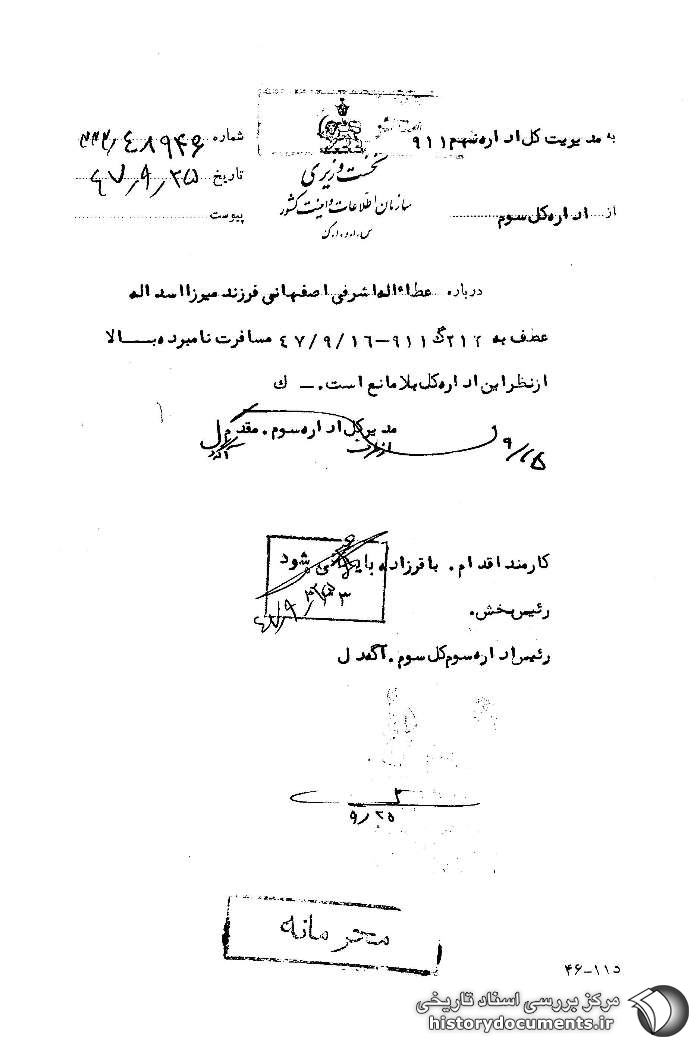 به مدیریت کل اداره نهم ۹۱۱
شماره ۴۸۹۴۶
تاریخ ۴۷٫۹٫۲۵
پیوست
نخست وزیری
سازمان اطلاعات و امنیت کشور
س.ا.و.ا.ک
از اداره کل سوم
درباره عطاءاله اشرفی اصفهانی فرزند میرزا اسداله
عطف به ۹۱۱-۴۷/۹/۱۶ مسافرت نامبرده بالا
از نظر این اداره کل بلامانع است. – ک
مدیرکل اداره سوم. مقدم
از طرف
۹/۲۵
کارمند اقدام. باقرزاده
بایگانی شود
رئیس بخش.
رئیس اداره سوم کل سوم.
۹/۲۵
محرمانه
۴۶-۱۱۵
مرکز بررسی اسناد تاریخی
historydocuments.ir